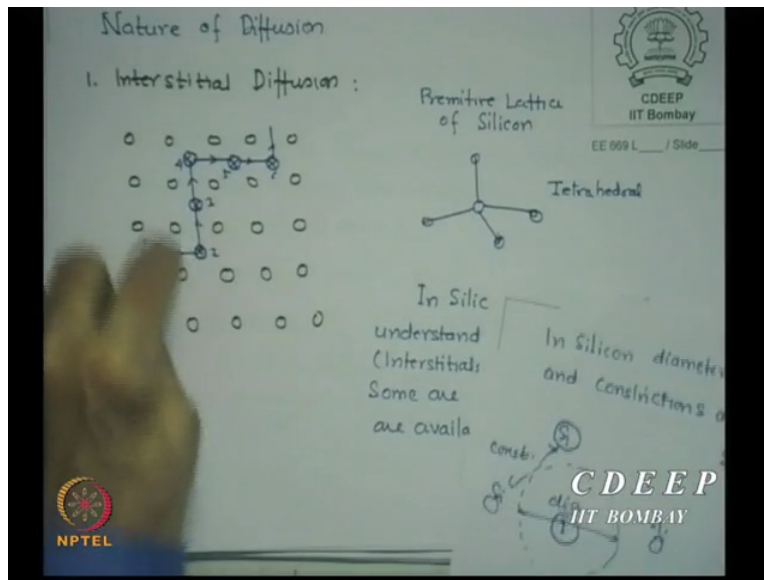 Nature of Diffusion
1. Interstitial Diffusion :
Premitive Lattice
of Silicon
Tetrahedral
CDEEP
IIT Bombay
EE 669 L___ / Slide___
4
5
3
2
In Silic
understand
(Interstitials
Some are
are availa
In Silicon diameter
and Constrictions a
Si
const.
Si
dia
I
Si
CDEEP
IIT BOMBAY
NPTEL